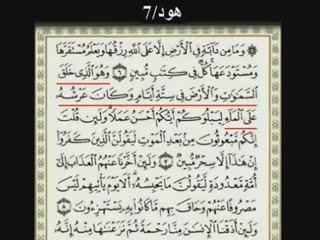 هود/7
۞ وَمَا مِن دَآبَّةٍ فِي ٱلْأَرْضِ إِلَّا عَلَى ٱللَّهِ رِزْقُهَا وَيَعْلَمُ مُسْتَقَرَّهَا
وَمُسْتَوْدَعَهَا كُلٌّ فِي كِتَٰبٍ مُّبِينٍ ٦ وَهُوَ ٱلَّذِي خَلَقَ
ٱلسَّمَٰوَٰتِ وَٱلْأَرْضَ فِي سِتَّةِ أَيَّامٍ وَكَانَ عَرْشُهُۥ
عَلَى ٱلْمَآءِ لِيَبْلُوَكُمْ أَيُّكُمْ أَحْسَنُ عَمَلًا وَلَئِن قُلْتَ
إِنَّكُم مَّبْعُوثُونَ مِنۢ بَعْدِ ٱلْمَوْتِ لَيَقُولَنَّ ٱلَّذِينَ كَفَرُوٓا۟
إِنْ هَٰذَآ إِلَّا سِحْرٌ مُّبِينٌ ٧ وَلَئِنْ أَخَّرْنَا عَنْهُمُ ٱلْعَذَابَ إِلَىٰٓ
أُمَّةٍ مَّعْدُودَةٍ لَّيَقُولُنَّ مَا يَحْبِسُهُۥٓ أَلَا يَوْمَ يَأْتِيهِمْ لَيْسَ
مَصْرُوفًا عَنْهُمْ وَحَاقَ بِهِم مَّا كَانُوا۟ بِهِۦ يَسْتَهْزِءُونَ ٨
وَلَئِنْ أَذَقْنَا ٱلْإِنسَٰنَ مِنَّا رَحْمَةً ثُمَّ نَزَعْنَٰهَا مِنْهُ إِنَّهُۥ